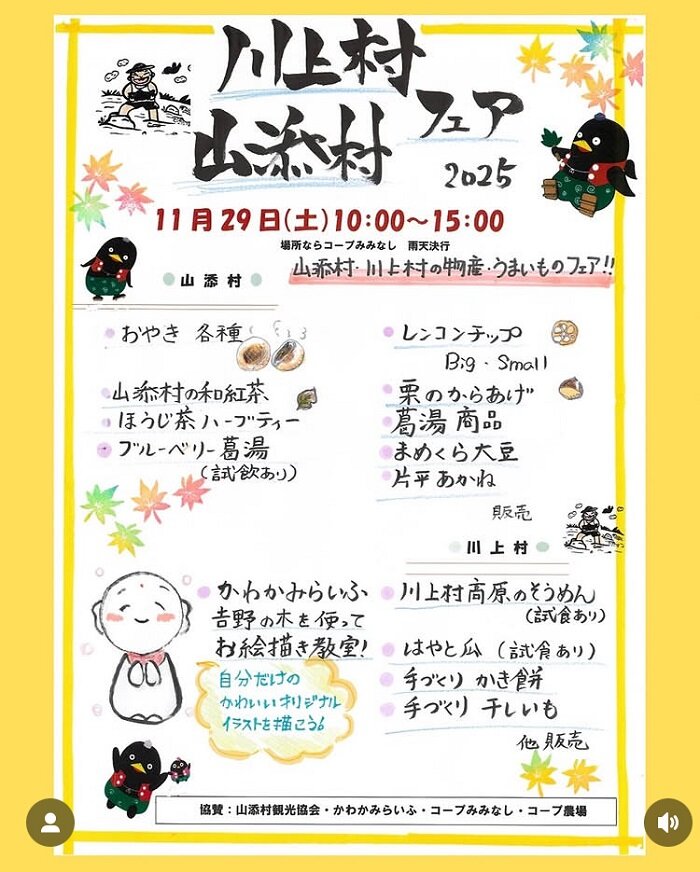 川上村
山添村
フェア
2025
11月29日(土)10:00～15:00
場所ならコープみみなし 雨天決行
山添村・川上村の物産・うまいものフェア!!
山添村
おやき 各種
山添村の和紅茶
ほうじ茶 ハーブティー
ブルーベリー葛湯
(試飲あり)
レンコンチップ
Big・Small
栗のからあげ
葛湯商品
まめくら大豆
片平あかね
販売
川上村
かわかみらいふ
吉野の木を使って
お絵描き教室!
自分だけの
かわいいオリジナル
イラストを描こう!
川上村高原のそうめん
(試食あり)
はやと瓜 (試食あり)
手づくり かき餅
手づくり 干しいも
他 販売
協賛：山添村観光協会・かわかみらいふ・コープみみなし・コープ農場